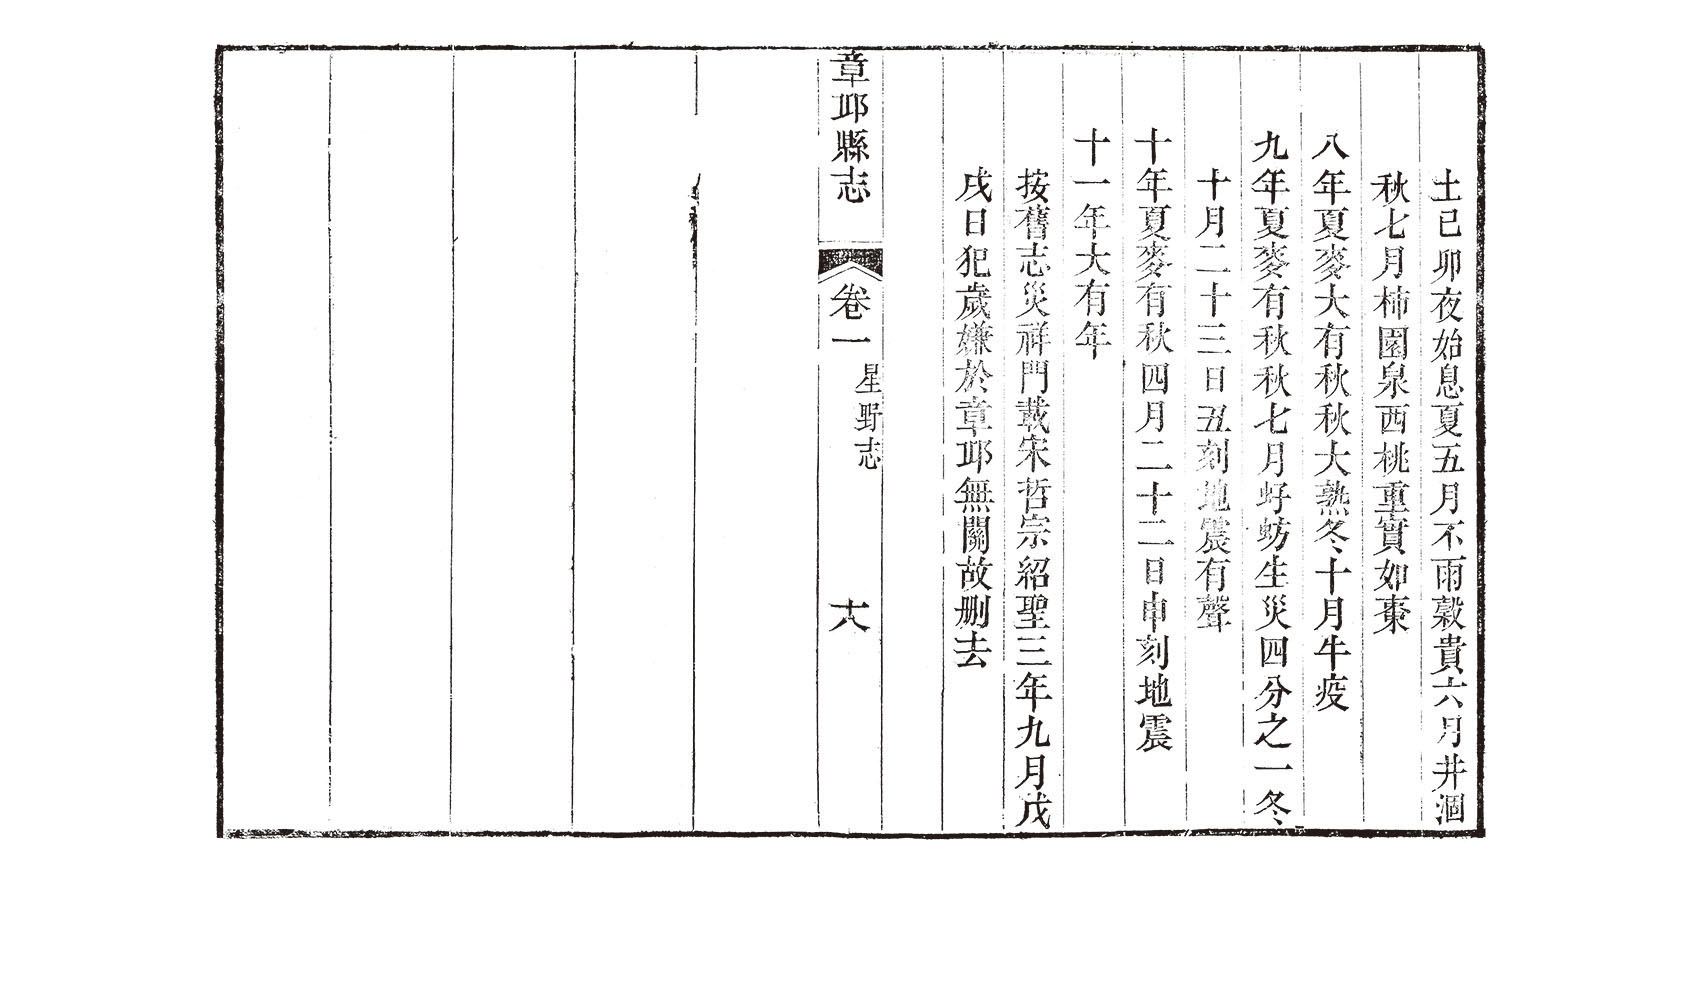 土己卯夜始息夏五月不雨穀貴六月井涸
秋七月柿園泉西桃重實如棗
八年夏麥大有秋秋大熟冬十月牛疫
九年夏麥有秋秋七月虸蚄生災四分之一冬
十月二十三日丑刻地震有聲
十年夏麥有秋四月二十二日申刻地震
十一年大有年
按舊志災祥門載宋哲宗紹聖三年九月戊
戌日犯歲嫌於章邱無關故删去
章邱縣志
卷一
星野志
十八